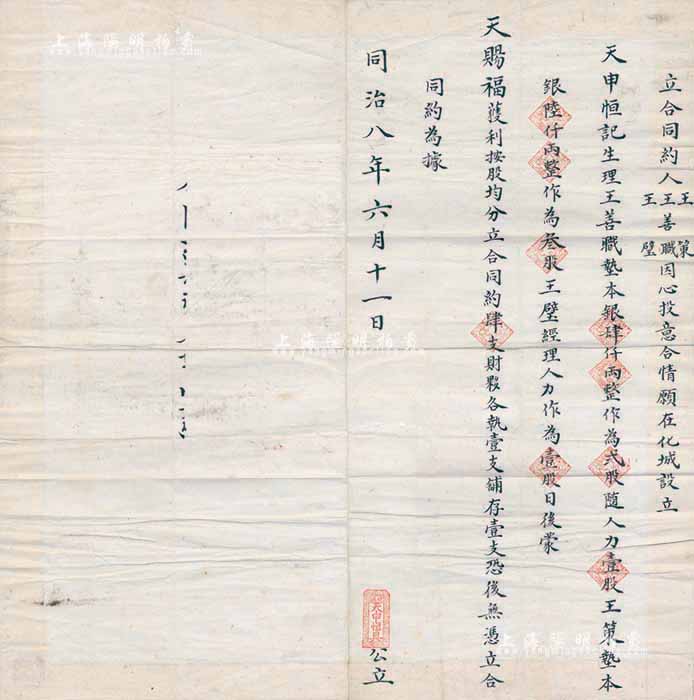 立合同約人王善職王策王璧因心投意合情願在化城設立
天申恒記生理王善職墊本銀肆仟兩整作為弍股隨人力壹股王策墊本
銀陸仟兩整作為叁股王璧經理人力作為壹股日後蒙
天賜福蔭利按股均分立合同約肆支財夥各執壹支鋪存壹支恐後無憑立合
同約為據
同治八年六月十一日
公立
上海陽明拍賣
上海陽明拍賣
上海陽明拍賣